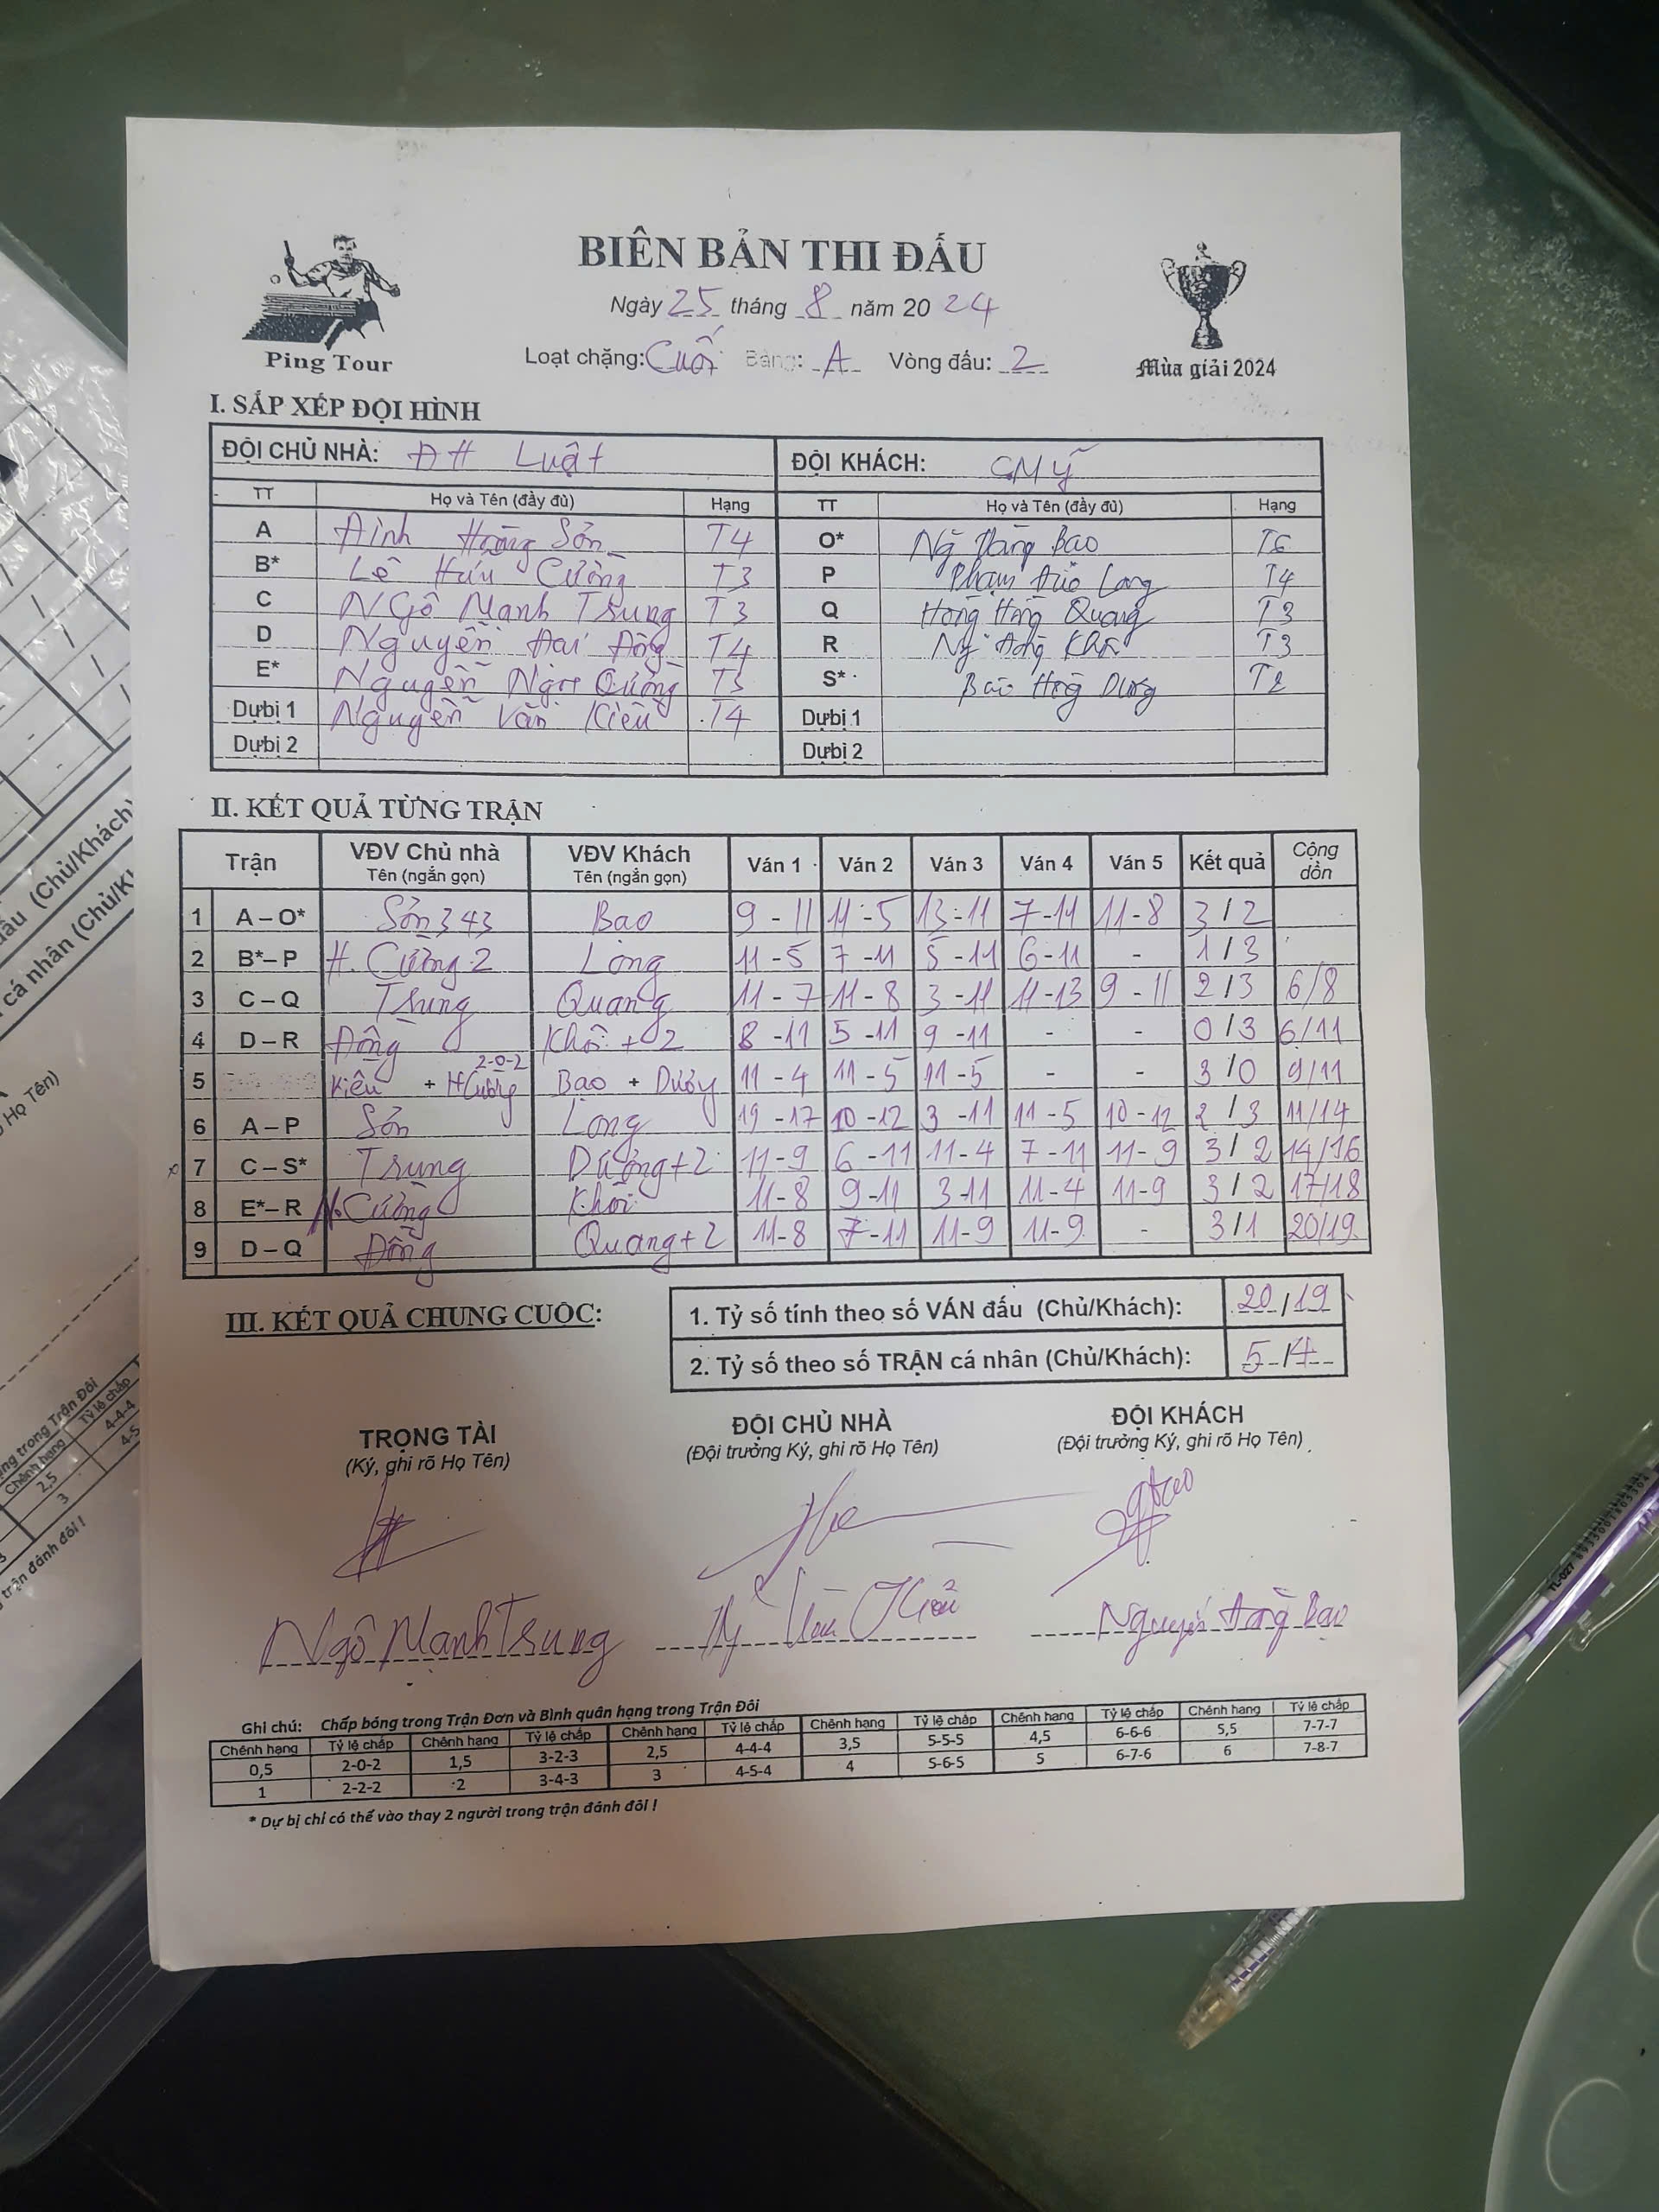 BIÊN BẢN THI ĐẤU
Ngày 25 tháng 8 năm 2024
Ping Tour
Loạt chặng: Cuối Bảng: A Vòng đấu: 2
Mùa giải 2024
I. SẮP XẾP ĐỘI HÌNH
ĐỘI CHỦ NHÀ: ĐH Luật ĐỘI KHÁCH: CMỹ
TT Họ và Tên (đầy đủ) Hạng TT Họ và Tên (đầy đủ) Hạng
A Đinh Hoàng Sơn T4 O* Ng Đăng Bao T6
B* Lê Hữu Cường T3 P Phạm Đức Long T4
C Ngô Mạnh Trung T3 Q Hoàng Hồng Quang T3
D Nguyễn Đại Đồng T4 R Ng Đăng Khôi T3
E* Nguyễn Ngọc Cường T5 S* Bao Hoàng Dương T2
Dự bị 1 Nguyễn Văn Kiều T4 Dự bị 1
Dự bị 2 Dự bị 2
II. KẾT QUẢ TỪNG TRẬN
Trận VĐV Chủ nhà Tên (ngắn gọn) VĐV Khách Tên (ngắn gọn) Ván 1 Ván 2 Ván 3 Ván 4 Ván 5 Kết quả Cộng dồn
1 A – O* Sơn 343 Bao 9 - 11 11 - 5 13 - 11 7 - 11 11 - 8 3 / 2
2 B*– P H. Cường 2 Long 11 - 5 7 - 11 5 - 11 6 - 11 - 1 / 3
3 C – Q Trung Quang 11 - 7 11 - 8 3 - 11 11 - 13 9 - 11 2 / 3 6/8
4 D – R Đồng Khôi + 2 8 - 11 5 - 11 9 - 11 - - 0 / 3 6/11
5 Kiều + H Cường 2-0-2 Bao + Dương 11 - 4 11 - 5 11 - 5 - - 3 / 0 9/11
6 A – P Sơn Long 19 - 17 10 - 12 3 - 11 11 - 5 10 - 12 2 / 3 11/14
7 C – S* Trung Dương + 2 11 - 9 6 - 11 11 - 4 7 - 11 11 - 9 3 / 2 14/16
8 E*– R N. Cường Khôi 11 - 8 9 - 11 3 - 11 11 - 4 11 - 9 3 / 2 17/18
9 D – Q Đồng Quang + 2 11 - 8 7 - 11 11 - 9 11 - 9 - 3 / 1 20/19
III. KẾT QUẢ CHUNG CUỘC:
1. Tỷ số tính theo số VÁN đấu (Chủ/Khách): 20 / 19
2. Tỷ số theo số TRẬN cá nhân (Chủ/Khách): 5 / 4
TRỌNG TÀI ĐỘI CHỦ NHÀ ĐỘI KHÁCH
(Ký, ghi rõ Họ Tên) (Đội trưởng Ký, ghi rõ Họ Tên) (Đội trưởng Ký, ghi rõ Họ Tên)
Ngô Mạnh Trung Ng Văn Kiều Nguyễn Đăng Bao
Ghi chú: Chấp bóng trong Trận Đơn và Bình quân hạng trong Trận Đôi
Chênh hạng Tỷ lệ chấp Chênh hạng Tỷ lệ chấp Chênh hạng Tỷ lệ chấp Chênh hạng Tỷ lệ chấp Chênh hạng Tỷ lệ chấp Chênh hạng Tỷ lệ chấp
0,5 2-0-2 1,5 3-2-3 2,5 4-4-4 3,5 5-5-5 4,5 6-6-6 5,5 7-7-7
1 2-2-2 2 3-4-3 3 4-5-4 4 5-6-5 5 6-7-6 6 7-8-7
* Dự bị chỉ có thể vào thay 2 người trong trận đánh đôi !
(Chủ/Khách)
cá nhân (Chủ/K
Họ Tên)
trong Trận Đôi
Chênh hạng Tỷ lệ chấp
2,5 4-4-4
3 4-5
trận đánh đôi !
TL-027